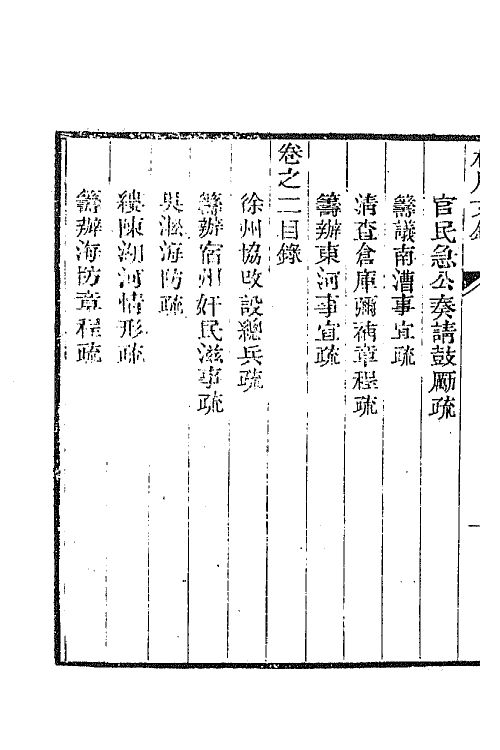 官民急公奏請鼓厲疏
籌議南漕事宜疏
清查倉庫彌補章程疏
籌辦東河事宜疏
卷之二目錄
徐州協改設總兵疏
籌辦宿州奸民滋事疏
吳淞海防疏
縷陳湖河情形疏
籌辦海防章程疏